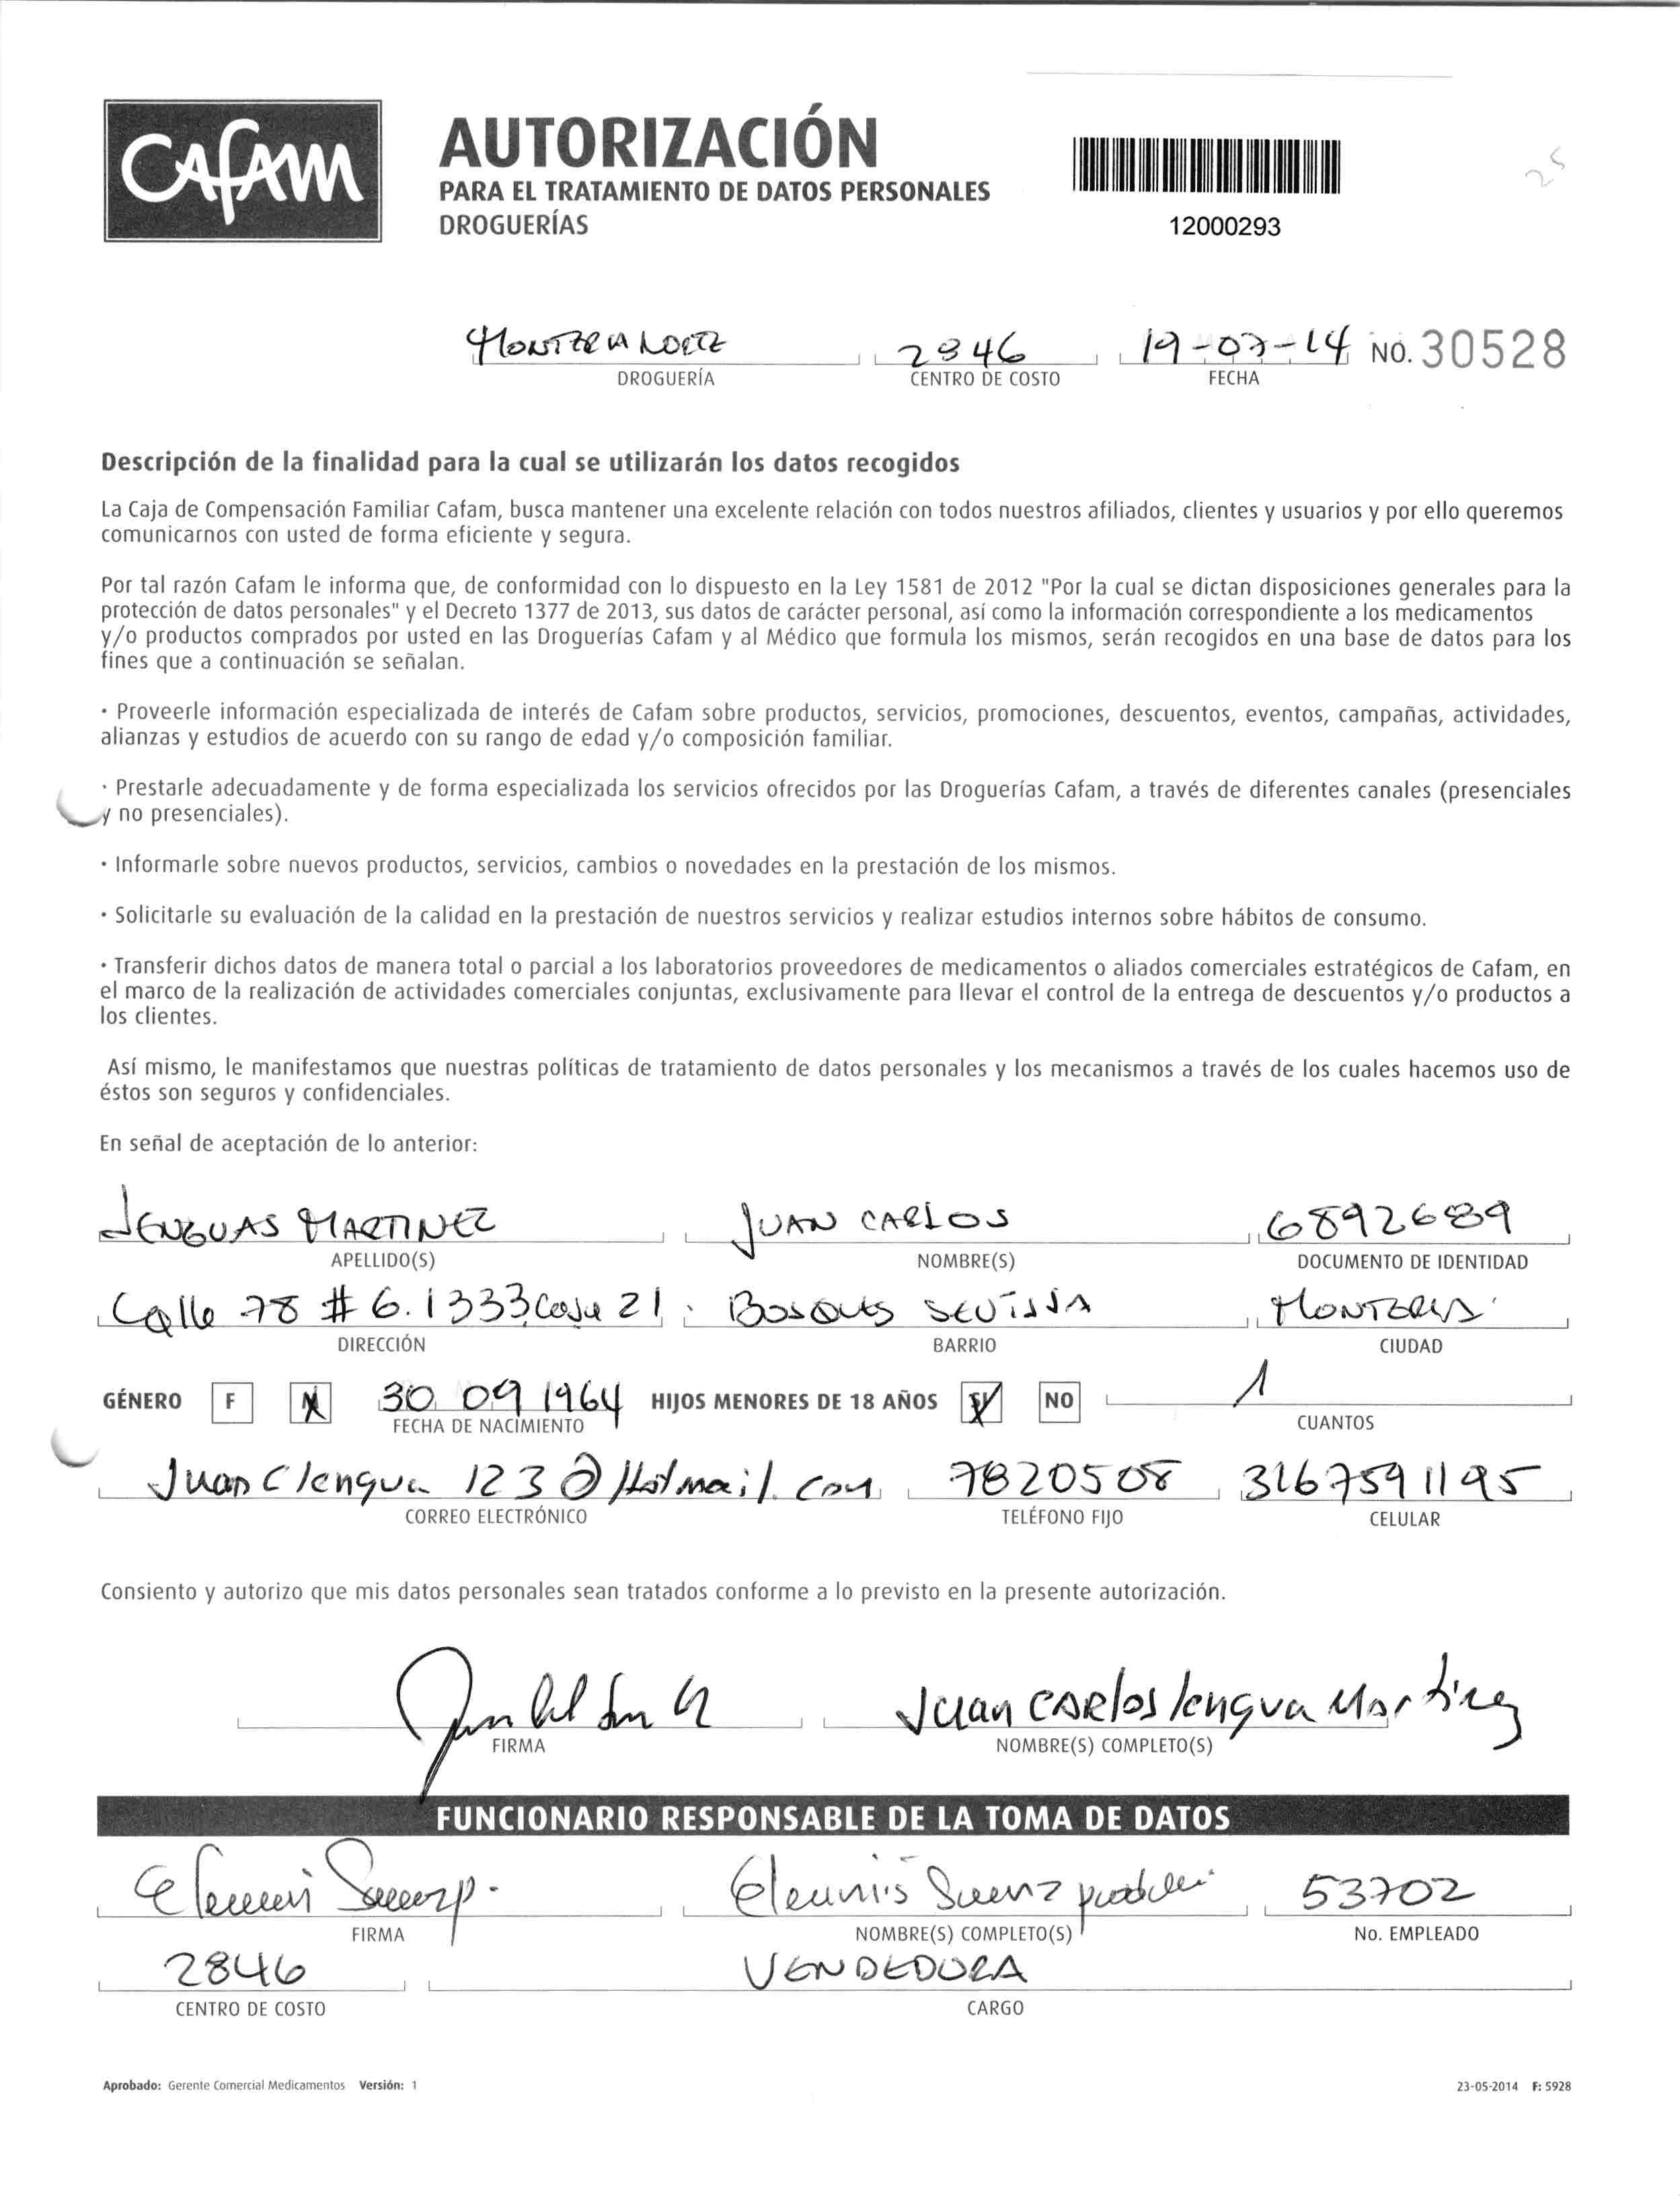 Cafam
AUTORIZACIÓN
PARA EL TRATAMIENTO DE DATOS PERSONALES
DROGUERÍAS
12000293
25
MONTERIA NORTE 2846 19-07-14 NO. 30528
DROGUERÍA CENTRO DE COSTO FECHA
Descripción de la finalidad para la cual se utilizarán los datos recogidos
La Caja de Compensación Familiar Cafam, busca mantener una excelente relación con todos nuestros afiliados, clientes y usuarios y por ello queremos
comunicarnos con usted de forma eficiente y segura.
Por tal razón Cafam le informa que, de conformidad con lo dispuesto en la Ley 1581 de 2012 "Por la cual se dictan disposiciones generales para la
protección de datos personales" y el Decreto 1377 de 2013, sus datos de carácter personal, así como la información correspondiente a los medicamentos
y/o productos comprados por usted en las Droguerías Cafam y al Médico que formula los mismos, serán recogidos en una base de datos para los
fines que a continuación se señalan.
· Proveerle información especializada de interés de Cafam sobre productos, servicios, promociones, descuentos, eventos, campañas, actividades,
alianzas y estudios de acuerdo con su rango de edad y/o composición familiar.
· Prestarle adecuadamente y de forma especializada los servicios ofrecidos por las Droguerías Cafam, a través de diferentes canales (presenciales
y no presenciales).
· Informarle sobre nuevos productos, servicios, cambios o novedades en la prestación de los mismos.
· Solicitarle su evaluación de la calidad en la prestación de nuestros servicios y realizar estudios internos sobre hábitos de consumo.
· Transferir dichos datos de manera total o parcial a los laboratorios proveedores de medicamentos o aliados comerciales estratégicos de Cafam, en
el marco de la realización de actividades comerciales conjuntas, exclusivamente para llevar el control de la entrega de descuentos y/o productos a
los clientes.
Así mismo, le manifestamos que nuestras políticas de tratamiento de datos personales y los mecanismos a través de los cuales hacemos uso de
éstos son seguros y confidenciales.
En señal de aceptación de lo anterior:
LENGUAS MARTINEZ JUAN CARLOS 68926889
APELLIDO(S) NOMBRE(S) DOCUMENTO DE IDENTIDAD
Calle 78 # 6.1333 casa 21 Bosques SEVILLA MONTERIA
DIRECCIÓN BARRIO CIUDAD
GÉNERO F M 30 09 1964 HIJOS MENORES DE 18 AÑOS SI NO 1
FECHA DE NACIMIENTO CUANTOS
Juan Clengua 123@Hotmail.com 7820508 3167591195
CORREO ELECTRÓNICO TELÉFONO FIJO CELULAR
Consiento y autorizo que mis datos personales sean tratados conforme a lo previsto en la presente autorización.
Juan CARlos lengua Martinez
FIRMA NOMBRE(S) COMPLETO(S)
FUNCIONARIO RESPONSABLE DE LA TOMA DE DATOS
Saenz 53702
FIRMA NOMBRE(S) COMPLETO(S) No. EMPLEADO
2846 VENDEDORA
CENTRO DE COSTO CARGO
Aprobado: Gerente Comercial Medicamentos Versión: 1 23-05-2014 F: 5928